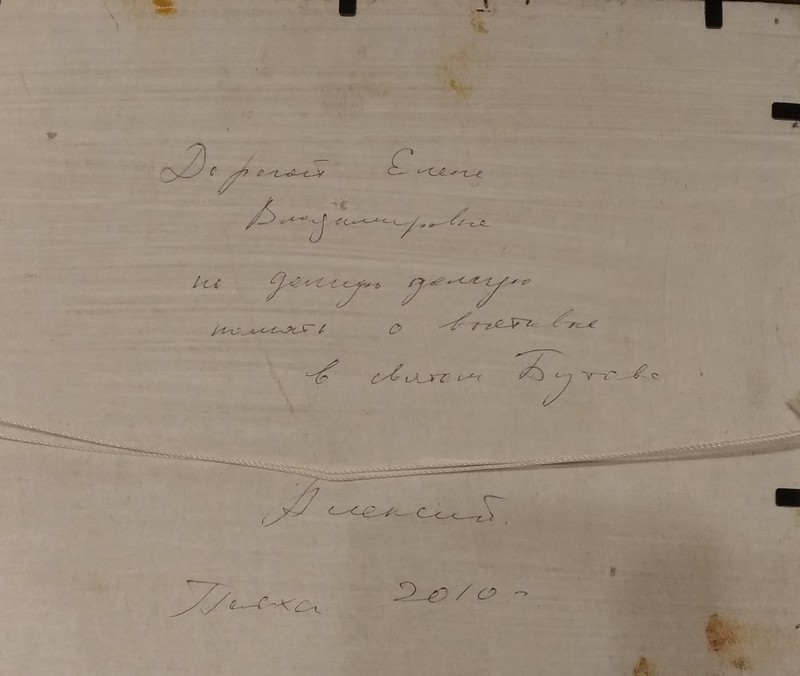 Дорогой Елене
Владимировне
на долгую долгую
память о выставке
в святом Бутово
Алексий
Пасха 2010 г